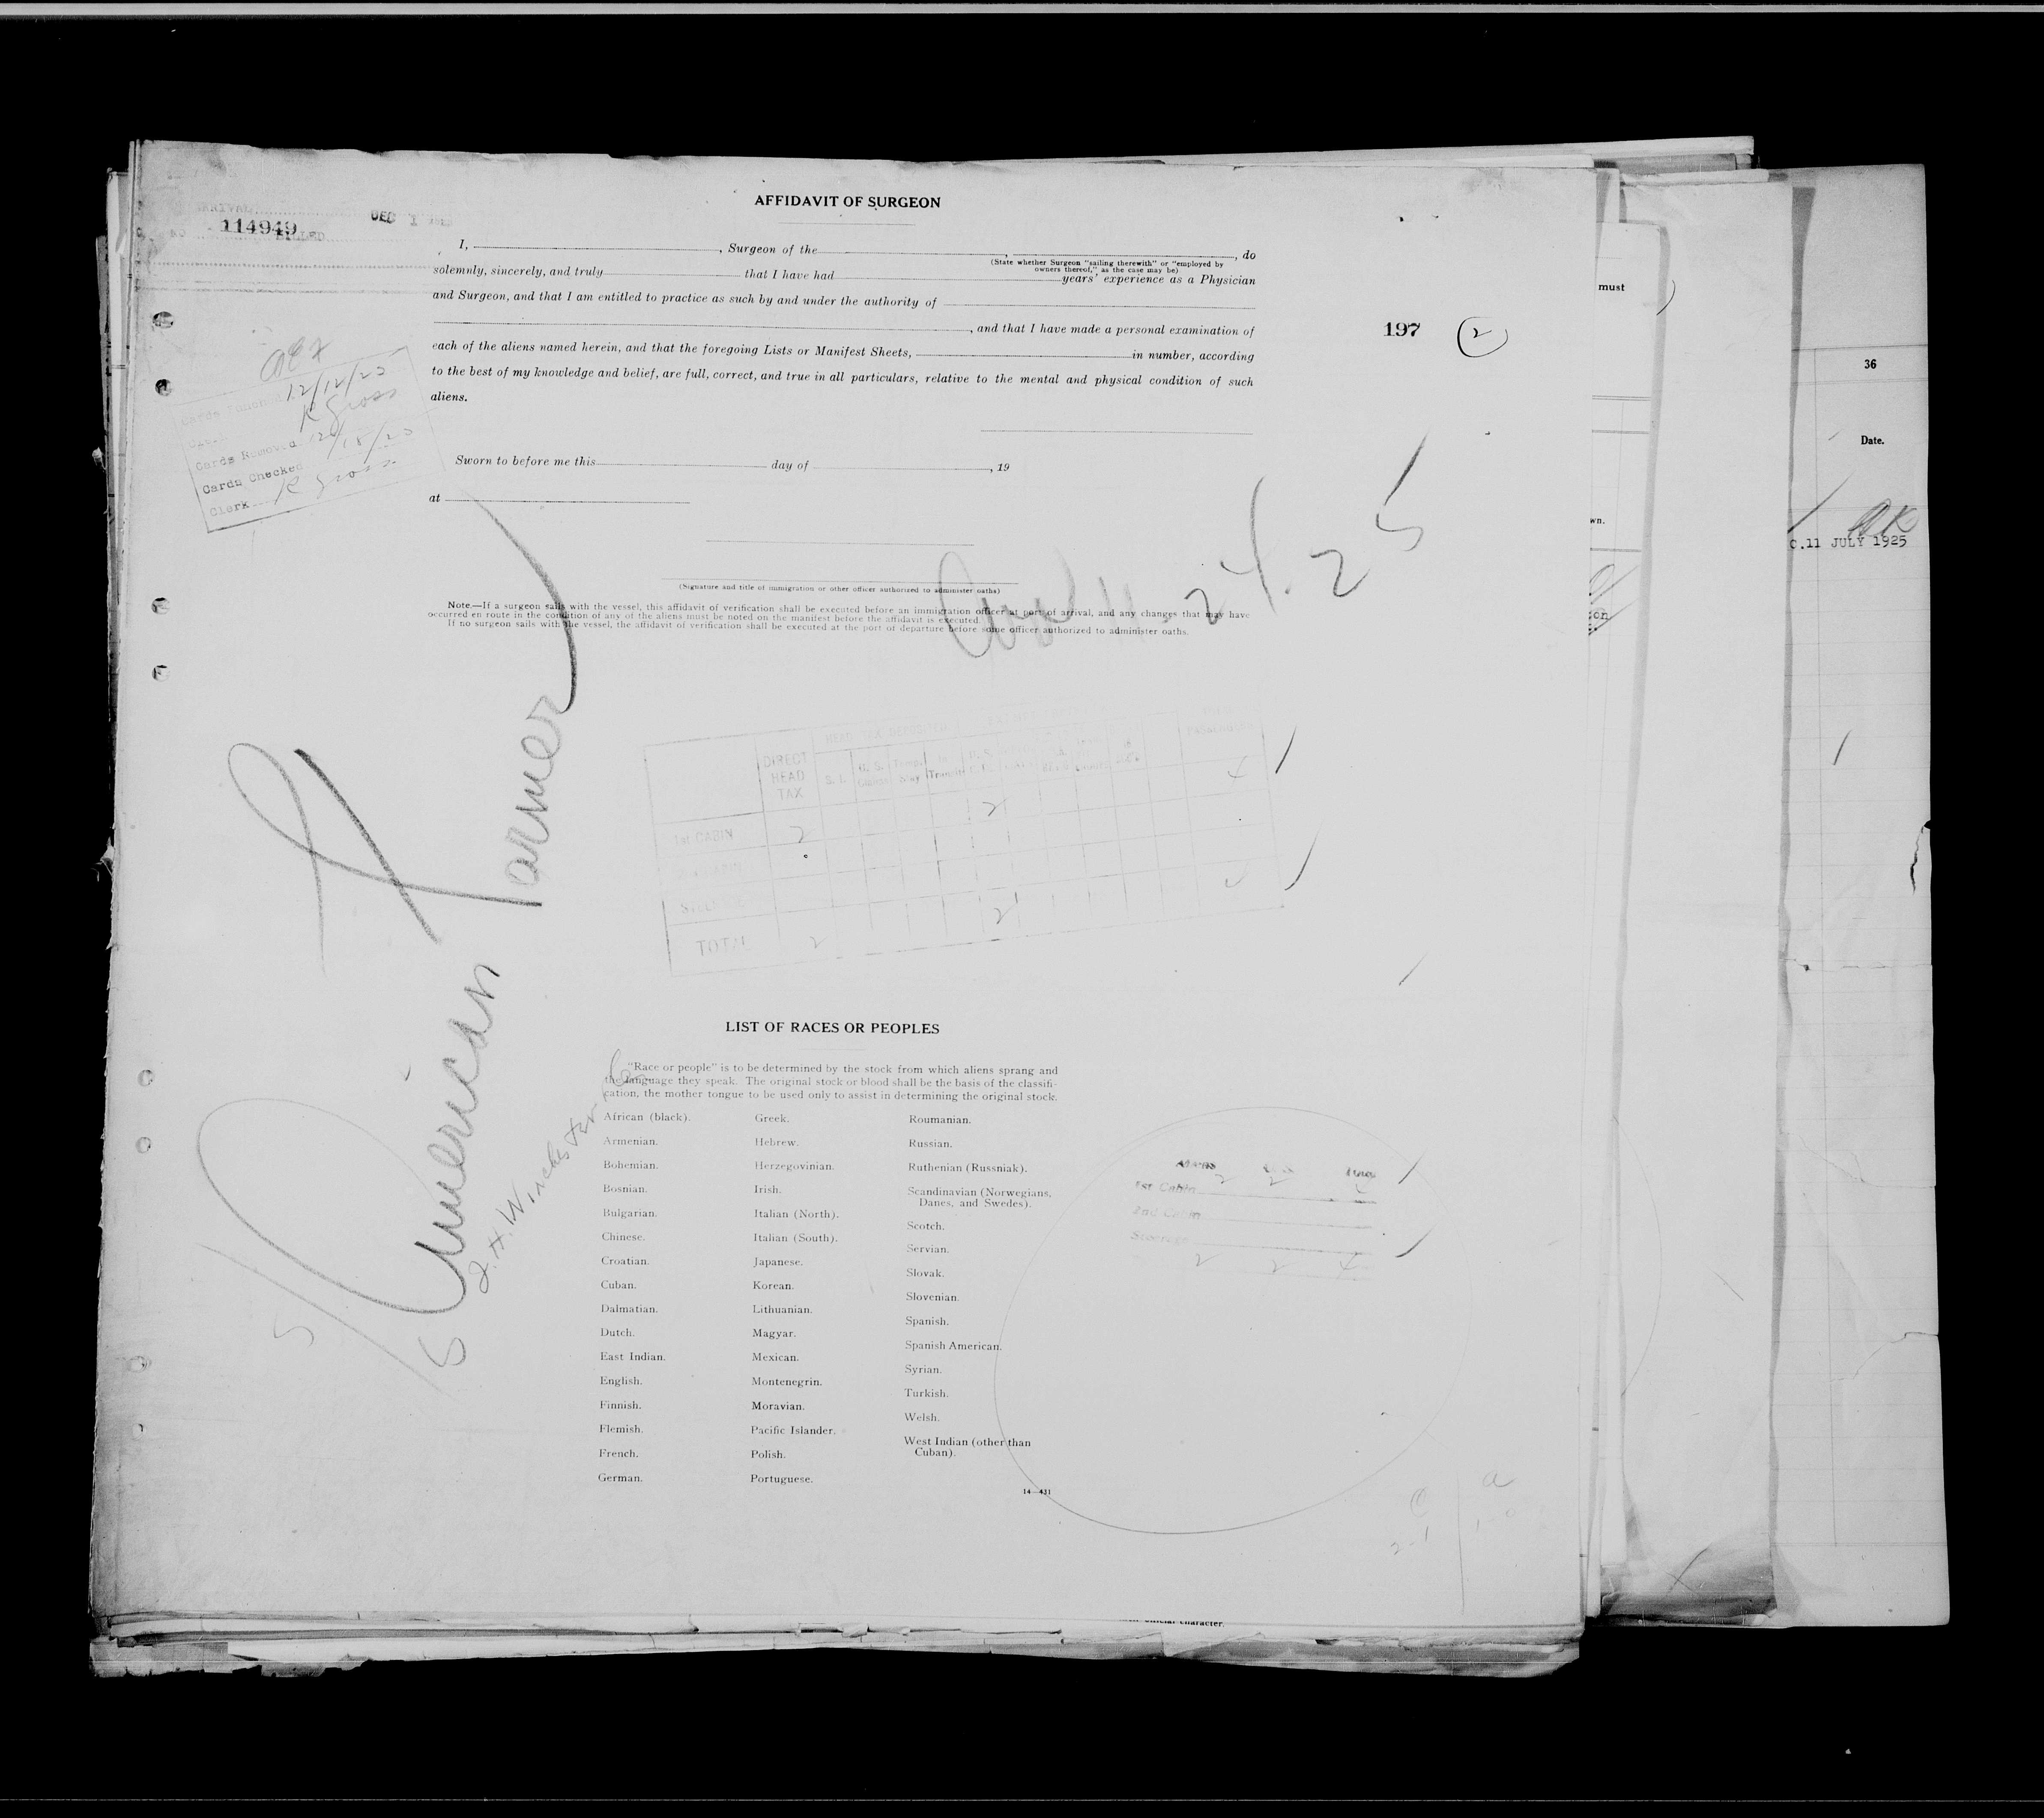 AFFIDAVIT OF SURGEON
DEC 1
114949
I, , Surgeon of the , , do
(State whether Surgeon "sailing therewith" or "employed by
owners thereof," as the case may be)
solemnly, sincerely, and truly that I have had years' experience as a Physician
and Surgeon, and that I am entitled to practice as such by and under the authority of
, and that I have made a personal examination of
each of the aliens named herein, and that the foregoing Lists or Manifest Sheets, in number, according
to the best of my knowledge and belief, are full, correct, and true in all particulars, relative to the mental and physical condition of such
aliens.
197 2
must
36
Date.
C.11 JULY 1925
wn.
Cards Removed
Cards Checked
Clerk K Gross
Sworn to before me this day of , 19
at
(Signature and title of immigration or other officer authorized to administer oaths)
Note.—If a surgeon sails with the vessel, this affidavit of verification shall be executed before an immigration officer at port of arrival, and any changes that may have
occurred en route in the condition of any of the aliens must be noted on the manifest before the affidavit is executed.
If no surgeon sails with the vessel, the affidavit of verification shall be executed at the port of departure before some officer authorized to administer oaths.
24.25
American Farmer
J.H. Winchester Co
DIRECT
HEAD
TAX
HEAD TAX DEPOSITED
1st CABIN 2 2 4
TOTAL 2 2
LIST OF RACES OR PEOPLES
"Race or people" is to be determined by the stock from which aliens sprang and
the language they speak. The original stock or blood shall be the basis of the classifi-
cation, the mother tongue to be used only to assist in determining the original stock.
African (black).
Armenian.
Bohemian.
Bosnian.
Bulgarian.
Chinese.
Croatian.
Cuban.
Dalmatian.
Dutch.
East Indian.
English.
Finnish.
Flemish.
French.
German.
Greek.
Hebrew.
Herzegovinian.
Irish.
Italian (North).
Italian (South).
Japanese.
Korean.
Lithuanian.
Magyar.
Mexican.
Montenegrin.
Moravian.
Pacific Islander.
Polish.
Portuguese.
Roumanian.
Russian.
Ruthenian (Russniak).
Scandinavian (Norwegians,
Danes, and Swedes).
Scotch.
Servian.
Slovak.
Slovenian.
Spanish.
Spanish American.
Syrian.
Turkish.
Welsh.
West Indian (other than
Cuban).
14—431
1st Cabin 2 2 4
2nd Cabin
Steerage
2 2 4
official character.